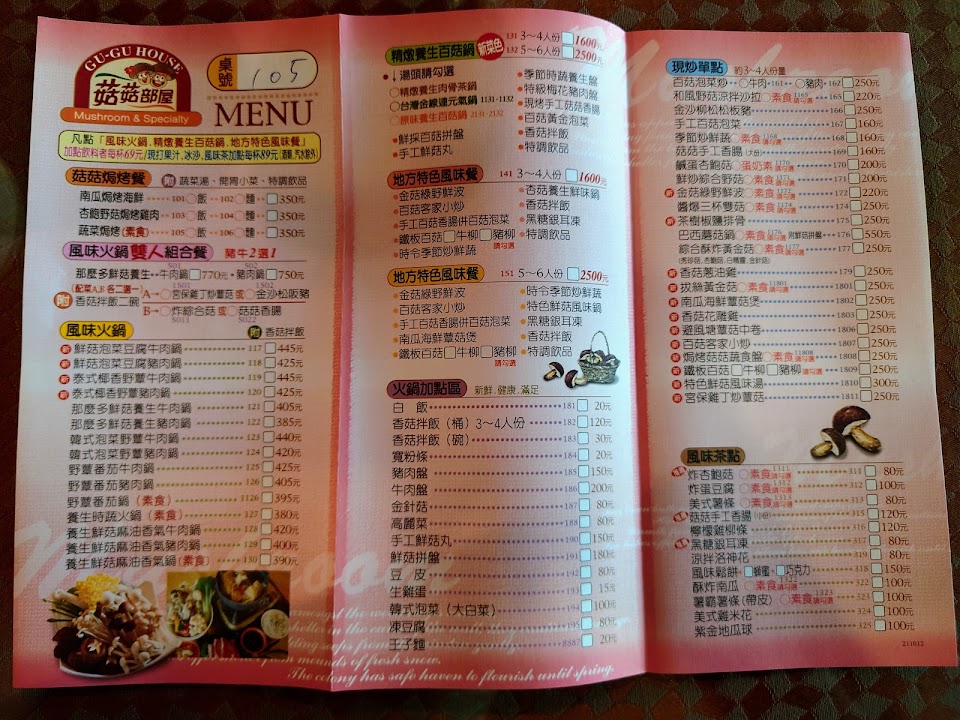 GU-GU HOUSE
菇菇部屋
Mushroom & Specialty
桌號 105
MENU
凡點「風味火鍋.精燉養生百菇鍋.地方特色風味餐」
加點飲料者每杯69元/現打果汁.冰沙.風味茶加點每杯89元(酒類.汽水除外)
菇菇焗烤餐 附 蔬菜湯、開胃小菜、特調飲品
南瓜焗烤海鮮 101 飯 102 麵 350元
杏鮑野菇焗烤雞肉 103 飯 104 麵 350元
蔬菜焗烤(素食) 105 飯 106 麵 350元
風味火鍋雙人組合餐 豬牛2選1
那麼多鮮菇養生・牛肉鍋 S01 770元・豬肉鍋 S02 750元
(配菜A.B 各二選一)
附 香菇拌飯二碗
A 宮保雞丁炒蕈菇 或 金沙松阪豬
B 炸綜合菇 或 菇菇香腸
S011 S022
風味火鍋 附 香菇拌飯
鮮菇泡菜豆腐牛肉鍋 117 445元
鮮菇泡菜豆腐豬肉鍋 118 425元
泰式椰香野蕈牛肉鍋 119 445元
泰式椰香野蕈豬肉鍋 120 425元
那麼多鮮菇養生牛肉鍋 121 405元
那麼多鮮菇養生豬肉鍋 122 385元
韓式泡菜野蕈牛肉鍋 123 440元
韓式泡菜野蕈豬肉鍋 124 420元
野蕈番茄牛肉鍋 125 425元
野蕈番茄豬肉鍋 126 405元
野蕈番茄鍋(素食) 1126 395元
養生時蔬火鍋(素食) 127 380元
養生鮮菇麻油香氣牛肉鍋 128 420元
養生鮮菇麻油香氣豬肉鍋 129 400元
養生鮮菇麻油香氣鍋(素食) 130 390元
精燉養生百菇鍋 新菜色
131 3~4人份 1600元
132 5~6人份 2500元
湯頭請勾選
精燉養生肉骨茶鍋
台灣金線連元氣鍋 1131-1132
原味養生百菇鍋 2131-2132
・鮮採百菇拼盤
・手工鮮菇丸
・季節時蔬養生盤
・特級梅花豬肉盤
・現烤手工菇菇香腸
・百菇黃金泡菜
・香菇拌飯
・特調飲品
地方特色風味餐 141 3~4人份 1600元
・金菇綠野鮮波
・百菇客家小炒
・手工百菇香腸併百菇泡菜
・鐵板百菇 牛柳 豬柳 請勾選
・時令季節炒鮮蔬
・杏菇養生鮮味鍋
・香菇拌飯
・黑糖銀耳凍
・特調飲品
地方特色風味餐 151 5~6人份 2500元
・金菇綠野鮮波
・百菇客家小炒
・手工百菇香腸併百菇泡菜
・南瓜海鮮蕈菇煲
・鐵板百菇 牛柳 豬柳 請勾選
・時令季節炒鮮蔬
・特色鮮菇風味鍋
・黑糖銀耳凍
・香菇拌飯
・特調飲品
火鍋加點區 新鮮.健康.滿足
白 飯 181 20元
香菇拌飯(桶)3~4人份 182 120元
香菇拌飯(碗) 183 30元
寬粉條 184 20元
豬肉盤 185 150元
牛肉盤 186 200元
金針菇 187 80元
高麗菜 188 80元
手工鮮菇丸 190 150元
鮮菇拼盤 191 180元
豆 皮 192 80元
生雞蛋 193 15元
韓式泡菜(大白菜) 194 100元
凍豆腐 195 80元
王子麵 8887 20元
現炒單點 約3~4人份量
百菇泡菜炒 牛肉 161 豬肉 162 250元
和風野菇涼拌沙拉 素食 1165 請勾選 165 220元
金沙柳松松板豬 166 250元
手工百菇泡菜 167 160元
季節炒鮮蔬 素食 1168 請勾選 168 160元
菇菇手工香腸(大份) 169 180元
鹹蛋杏鮑菇 蛋奶素 1170 請勾選 170 200元
鮮炒綜合野菇 素食 1171 請勾選 171 200元
金菇綠野鮮波 素食 1172 請勾選 172 220元
醬爆三杯蕈菇 素食 1174 請勾選 174 250元
茶樹椒鹽排骨 175 250元
巴西蘑菇鍋 素食 1176 附鮮菇拼盤 176 550元
綜合酥炸黃金菇 素食 1177 請勾選 177 250元
(秀珍菇.杏鮑菇.白精靈.金針菇)
香菇蔥油雞 179 250元
拔絲黃金菇 素食 請勾選 1801 250元
南瓜海鮮蕈菇煲 1802 250元
香菇花雕雞 1803 250元
避風塘蕈菇中卷 1806 250元
百菇客家小炒 1807 250元
焗烤菇菇蔬食盤 素食 11808 請勾選 1808 250元
鐵板百菇 牛柳 豬柳 請勾選 1809 250元
特色鮮菇風味湯 1810 300元
宮保雞丁炒蕈菇 1811 250元
風味茶點
炸杏鮑菇 素食 1311 請勾選 311 80元
炸蛋豆腐 素食 1312 請勾選 312 100元
美式薯條 素食 1313 請勾選 313 80元
菇菇手工香腸(小份) 315 120元
檸檬雞柳條 316 120元
黑糖銀耳凍 317 80元
涼拌洛神花 319 80元
風味鬆餅 蜂蜜 巧克力 318 150元
酥炸南瓜 素食 1322 請勾選 322 100元
薯霸薯條(帶皮) 素食 1323 請勾選 323 100元
美式雞米花 324 100元
紫金地瓜球 325 80元
211012
from mounds of fresh snow.
The colony has safe haven to flourish until spring.